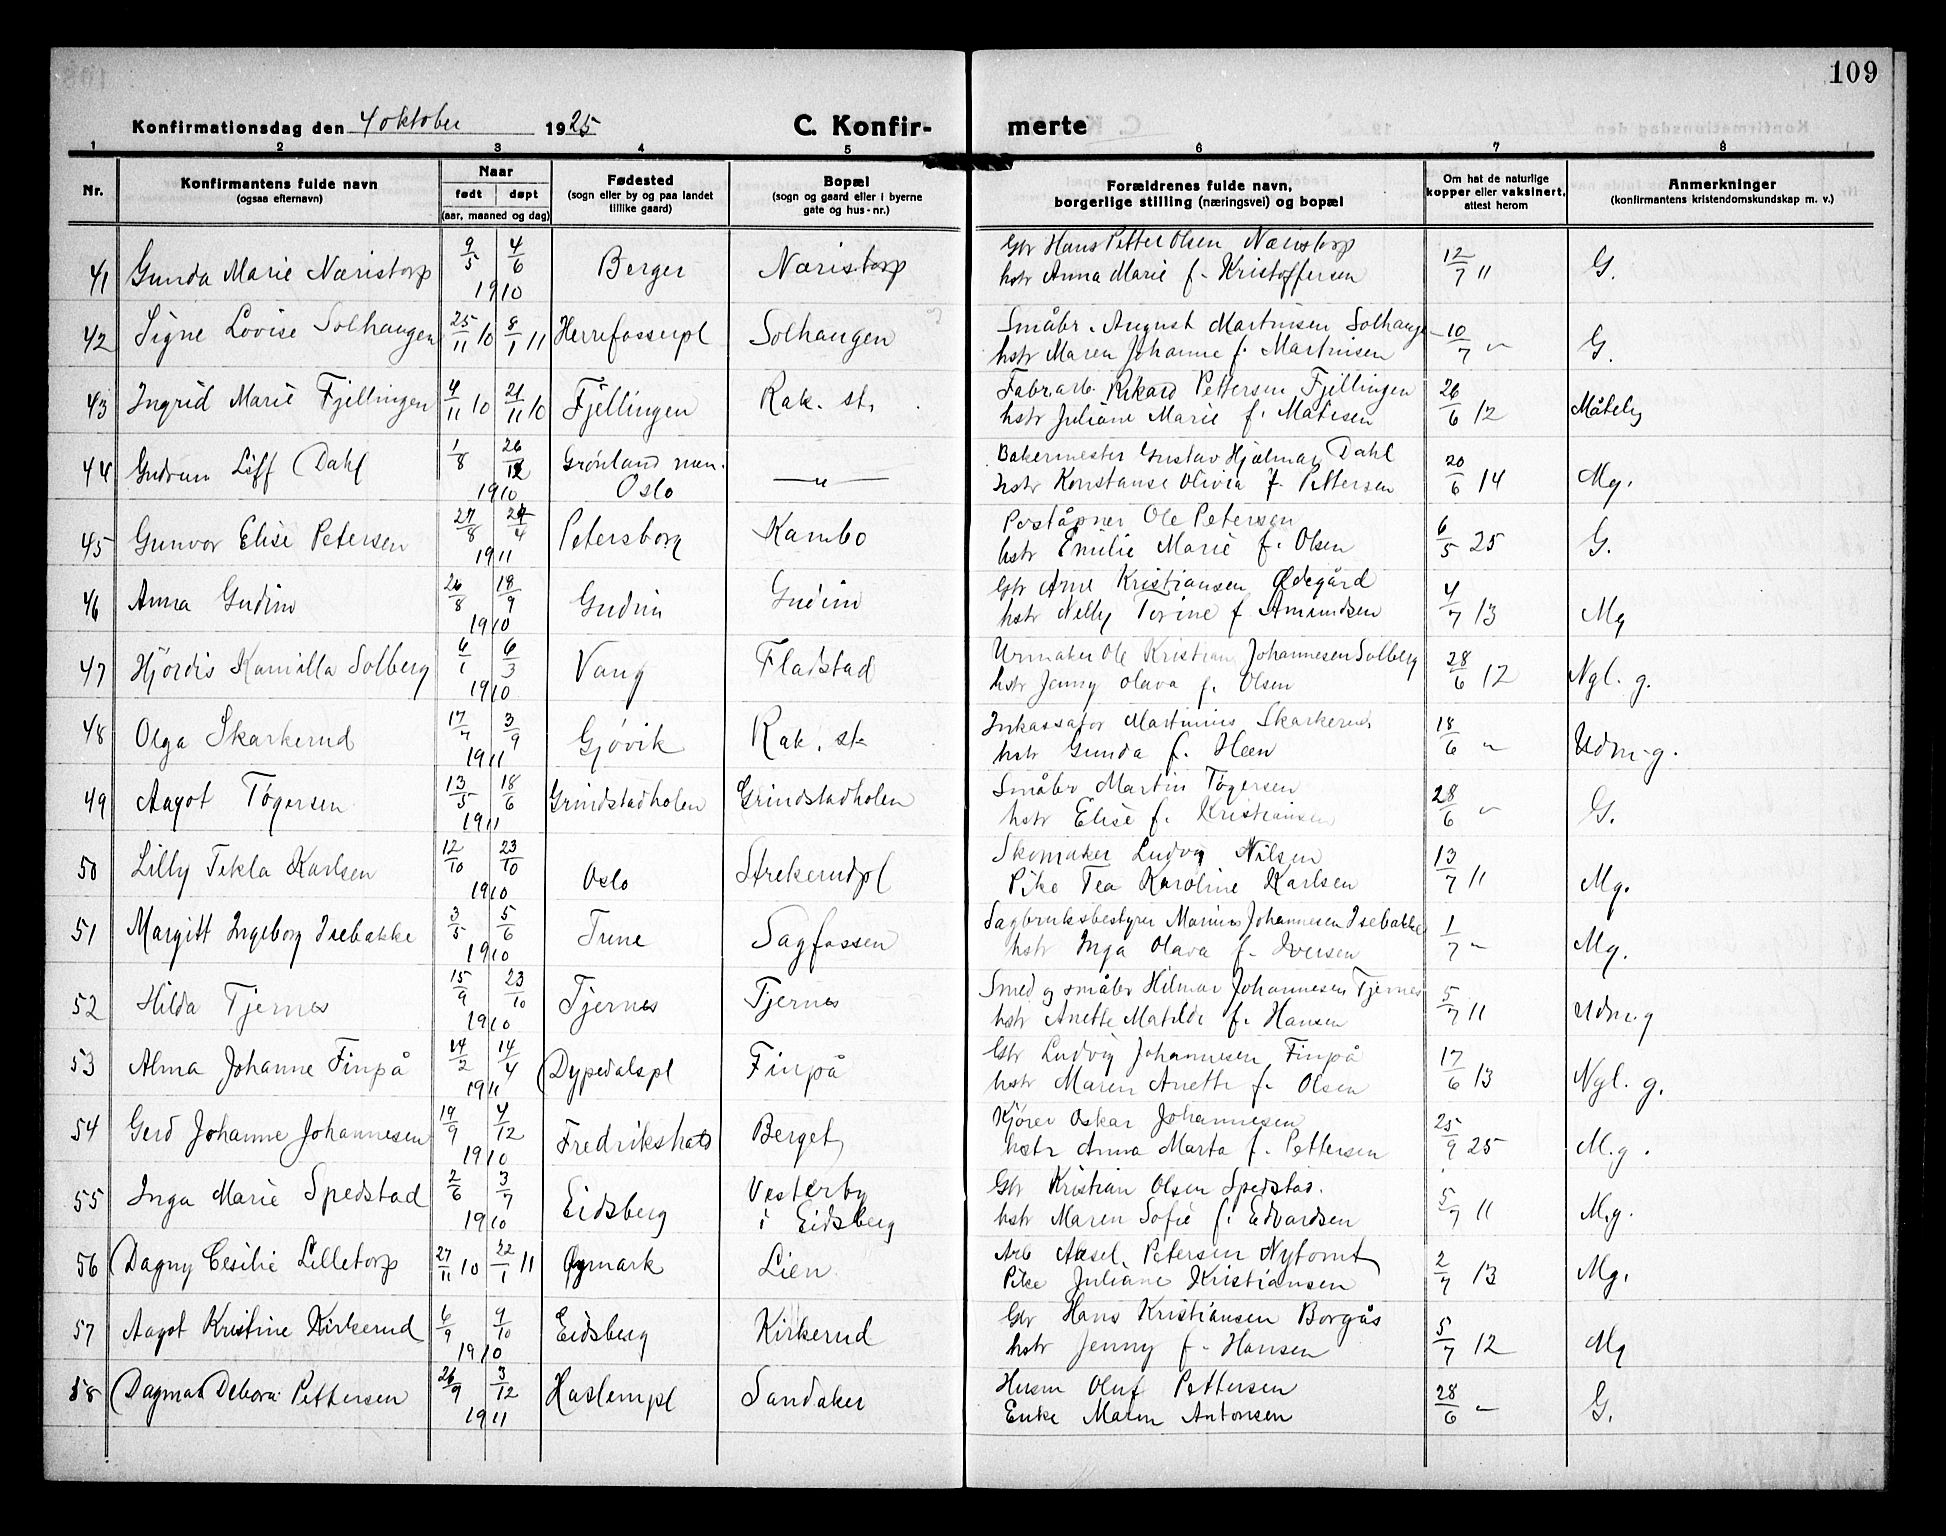 109
Konfirmationsdag den 4 oktober 1925 C. Konfir- merte
1 2 3 4 5 6 7 8
Nr. Konfirmantens fulde navn (ogsaa efternavn) Naar født døpt (aar, maaned og dag) Fødested (sogn eller by og paa landet tillike gaard) Bopæl (sogn og gaard eller i byerne gate og hus-nr.) Forældrenes fulde navn, borgerlige stilling (næringsvei) og bopæl Om hat de naturlige kopper eller vaksinert, attest herom Anmerkninger (konfirmantens kristendomskundskap m. v.)
41 Gunda Marie Næristorp 9/5 4/6 1910 Berger Næristorp Gbr Hans Petter Olsen Næristorp
hstr Anna Marie f. Kristoffersen 12/7 11 G.
42 Signe Lovise Solhaugen 25/11 10 8/1 11 Herrefosserpl Solhaugen Småbr. August Martinisen Solhauge
hstr Maren Johanne f. Martinisen 10/7 " G.
43 Ingrid Marie Fjellingen 4/11 10 21/11 10 Fjellingen Rak. st. Fabrarb. Rikard Pettersen Fjellingen
hstr Juliane Marie f. Matisen 26/6 12 Måtelig
44 Gudrun Liff Dahl 1/8 26/12 1910 Grønland men. Oslo — " — Bakermester Gustav Hjalmar Dahl
hstr Konstanse Olivia f. Pettersen 20/6 14 Mg.
45 Gunvor Elise Petersen 27/8 24/4 1911 Petersborg Kambo Poståpner Ole Petersen
hstr Emilie Marie f. Olsen 6/5 25 G.
46 Anna Gudim 26/8 18/9 1910 Gudim Gudim Gbr Arne Kristiansen Ødegård
hstr Nelly Torine f. Amundsen 4/7 13 Mg
47 Hjørdis Kamilla Solberg 6/1 6/3 1910 Vang Fladstad Urmaker Ole Kristian Johannesen Solberg
hstr Jenny Olava f. Olsen 28/6 12 Ngl. g.
48 Olga Skarkerud 17/7 3/9 1911 Gjøvik Rak. st. Inkassator Martinius Skarkerud
hstr Gunda f. Heen 18/6 " Udm. g.
49 Aagot Tøgersen 13/5 18/6 1911 Grindstadholen Grindstadholen Småbr Martin Tøgersen
hstr Elise f. Kristiansen 28/6 " G.
50 Lilly Tekla Karlsen 12/10 23/10 1910 Oslo Strekerudpl Skomaker Ludvig Nilsen
Pike Tea Karoline Karlsen 13/7 11 Mg.
51 Margitt Ingeborg Isebakke 3/5 5/6 1910 Tune Sagfossen Sagbruksbestyrer Marinius Johannesen Isebakke
hstr Inga Olava f. Iversen 1/7 " Mg.
52 Hilda Tjernes 15/9 23/10 1910 Tjernes Tjernes Smed og småbr Hilmar Johannesen Tjernes
hstr Anette Matilde f. Hansen 5/7 11 Udm. g
53 Alma Johanne Finpå 14/2 14/4 1911 Dypedalspl Finpå Gbr Ludvig Johannesen Finpå
hstr Maren Anette f. Olsen 17/6 13 Ngl. g.
54 Gerd Johanne Johannesen 19/9 4/12 1910 Fredrikshald Berget Kjører Oskar Johannesen
hstr Anna Marta f. Pettersen 25/9 25 M.g.
55 Inga Marie Spedstad 2/6 3/7 1910 Eidsberg Vesterby i Eidsberg Gbr Kristian Olsen Spedstad.
hstr Maren Sofie f. Edvardsen 5/7 11 M.g.
56 Dagny Cesilie Lilletorp 27/11 10 22/1 11 Øymark Lien Arb Aksel Petersen Nytomt
Pike Juliane Kristiansen 2/7 13 Mg.
57 Aagot Kristine Kirkerud 6/9 9/10 1910 Eidsberg Kirkerud Gbr Hans Kristiansen Borgås
hstr Jenny f. Hansen 5/7 12 Mg
58 Dagmar Debora Pettersen 26/9 3/12 1911 Haslempl Sandaker Husm Oluf Pettersen
Enke Maren Antonsen 28/6 " G.